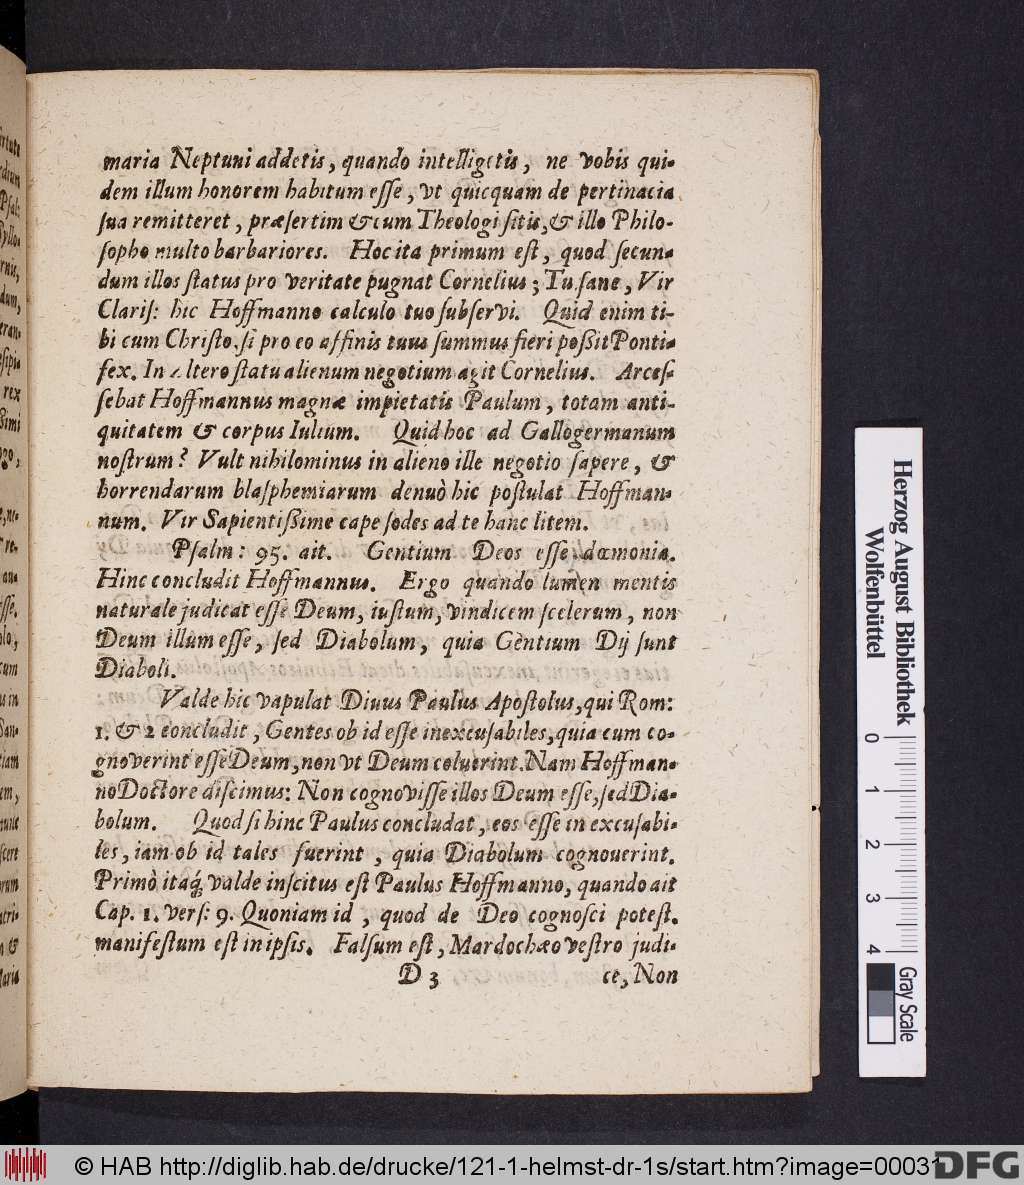 maria Neptuni addetis, quando intelligetis, ne vobis qui-
dem illum honorem habitum esse, vt quicquam de pertinacia
sua remitteret, præsertim & cum Theologi sitis, & illo Philo-
sopho multo barbariores. Hoc ita primum est, quod secun-
dum illos status pro veritate pugnat Cornelius; Tu sane, Vir
Claris: hic Hoffmanno calculo tuo subservi. Quid enim ti-
bi cum Christo, si pro eo affinis tuus summus fieri possit Ponti-
fex. In altero statu alienum negotium agit Cornelius. Arces-
sebat Hoffmannus magnæ impietatis Paulum, totam anti-
quitatem & corpus Iulium. Quid hoc ad Gallogermanum
nostrum? Vult nihilominus in alieno ille negotio sapere, &
horrendarum blasphemiarum denuò hic postulat Hoffman-
num. Vir Sapientissime cape sodes ad te hanc litem.
Psalm: 95. ait. Gentium Deos esse dœmonia.
Hinc concludit Hoffmannus. Ergo quando lumen mentis
naturale judicat esse Deum, iustum, vindicem scelerum, non
Deum illum esse, sed Diabolum, quia Gèntium Dij sunt
Diaboli.
Valde hic vapulat Diuus Paulus Apostolus, qui Rom:
1. & 2 concludit, Gentes ob id esse inexcusabiles, quia cum co-
gnoverint esse Deum, non vt Deum coluerint. Nam Hoffman-
no Doctore discimus: Non cognovisse illos Deum esse, sed Dia-
bolum. Quod si hinc Paulus concludat, eos esse in excusabi-
les, iam ob id tales fuerint, quia Diabolum cognouerint.
Primò itaq́; valde inscitus est Paulus Hoffmanno, quando ait
Cap. 1. vers: 9. Quoniam id, quod de Deo cognosci potest.
manifestum est in ipsis. Falsum est, Mardochæo vestro judi-
D 3 ce, Non
Herzog August Bibliothek
Wolfenbüttel
0 1 2 3 4
Gray Scale
© HAB http://diglib.hab.de/drucke/121-1-helmst-dr-1s/start.htm?image=00031
DFG